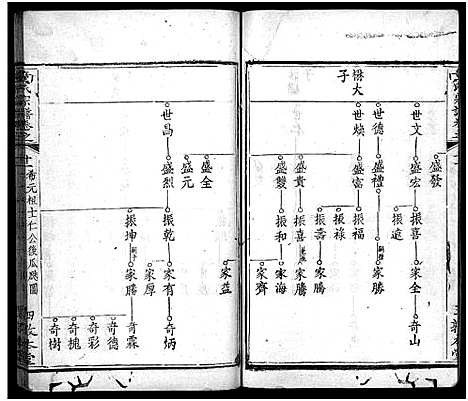 子
懋大
世文
世德
世煥
盛發
盛宏
盛禮
盛富
盛貴
盛雙
振喜
振遠
振福
振祿
振壽
振喜
振和
家全
家勝
家勝
家海
家齊
奇山
世昌
盛烈
盛元
盛全
振乾
振坤
家益
家有
家厚
家勝
奇炳
奇霖
奇德
奇彩
奇槐
奇樹
氏宗譜卷之
十一
希元祖士仁公後瓜瓞圖
四教本堂